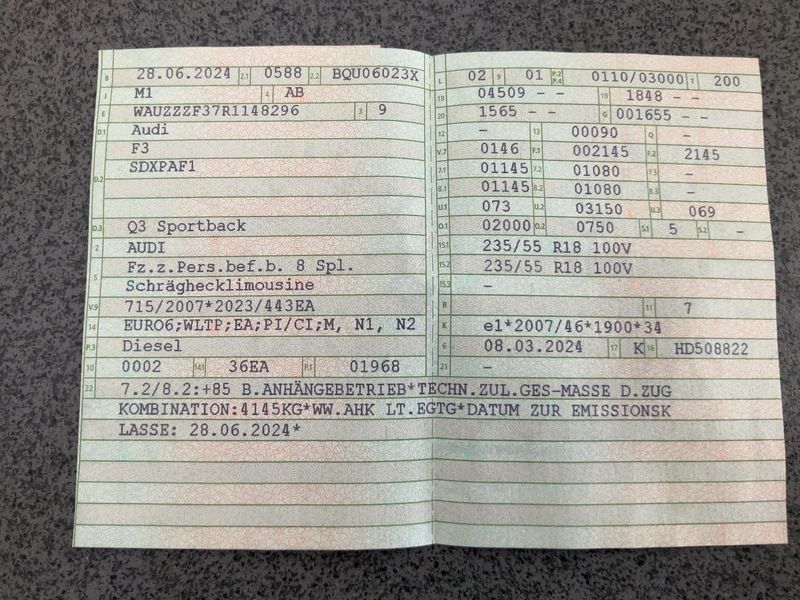 B 28.06.2024 2.1 0588 2.2 BQU06023X
J M1 4 AB
E WAUZZZF37R1148296 3 9
D.1 Audi
F3
D.2 SDXPAF1
D.3 Q3 Sportback
2 AUDI
5 Fz.z.Pers.bef.b. 8 Spl.
Schräghecklimousine
V.9 715/2007*2023/443EA
14 EURO6;WLTP;EA;PI/CI;M, N1, N2
P.3 Diesel
10 0002 14.1 36EA P.1 01968
L 02 9 01 P.2 P.4 0110/03000 T 200
18 04509 - - 19 1848 - -
20 1565 - - G 001655 - -
12 - 13 00090 Q -
V.7 0146 F.1 002145 F.2 2145
7.1 01145 7.2 01080 7.3 -
8.1 01145 8.2 01080 8.3 -
U.1 073 U.2 03150 U.3 069
O.1 02000 O.2 0750 S.1 5 S.2 -
15.1 235/55 R18 100V
15.2 235/55 R18 100V
15.3 -
R 11 7
K e1*2007/46*1900*34
6 08.03.2024 17 K 16 HD508822
21 -
22 7.2/8.2:+85 B.ANHÄNGEBETRIEB*TECHN.ZUL.GES-MASSE D.ZUG
KOMBINATION:4145KG*WW.AHK LT.EGTG*DATUM ZUR EMISSIONSK
LASSE: 28.06.2024*